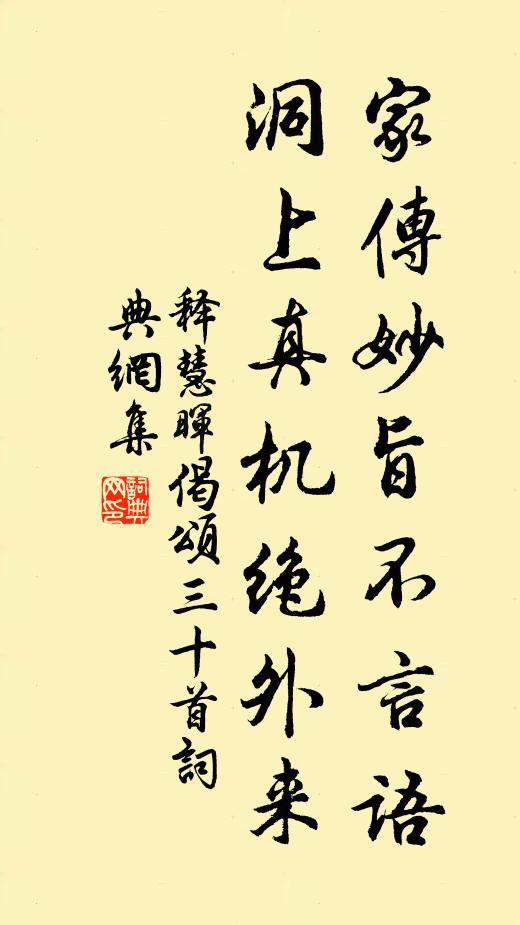 家傳妙旨不言語
洞上真机绝外来
释慧暉偈頌三十首詞
典網集
詞典
网印